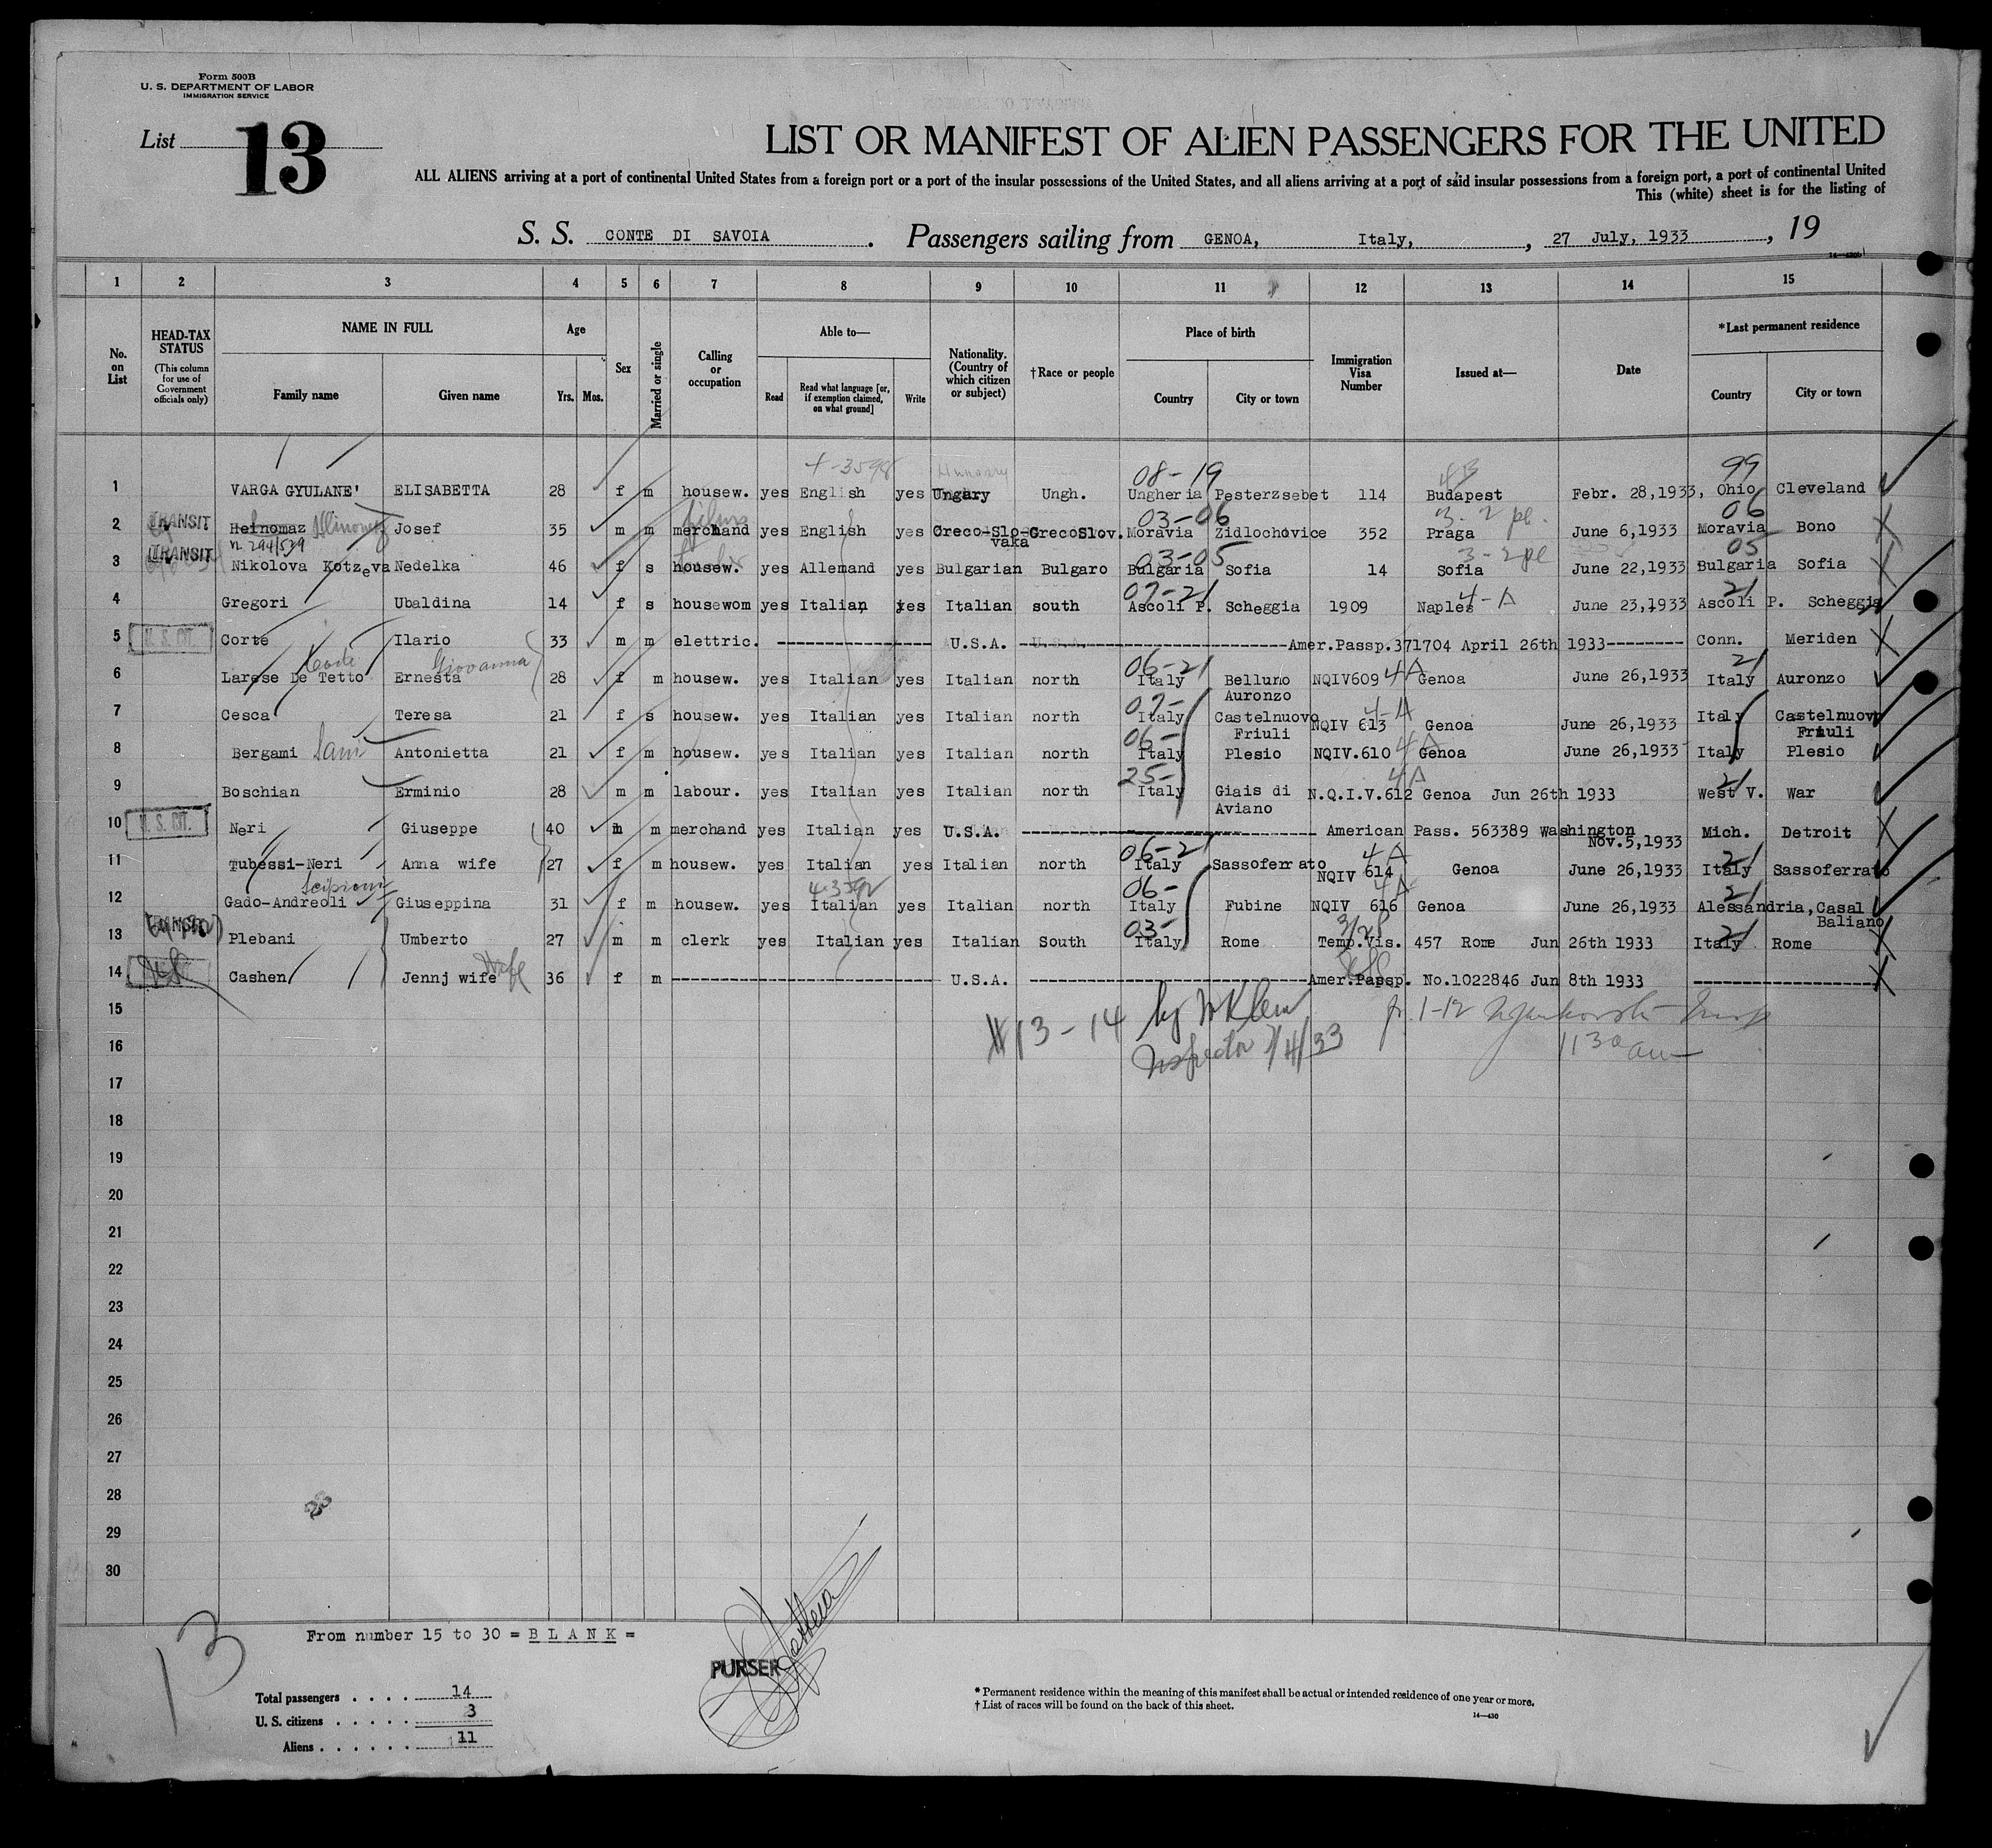 Form 500B
U. S. DEPARTMENT OF LABOR
IMMIGRATION SERVICE
List 13
LIST OR MANIFEST OF ALIEN PASSENGERS FOR THE UNITED
ALL ALIENS arriving at a port of continental United States from a foreign port or a port of the insular possessions of the United States, and all aliens arriving at a port of said insular possessions from a foreign port, a port of continental United
This (white) sheet is for the listing of
S. S. CONTE DI SAVOIA . Passengers sailing from GENOA, Italy, , 27 July, 1933 , 19
14—430b
1 2 3 4 5 6 7 8 9 10 11 12 13 14 15
No. on List
HEAD-TAX STATUS
(This column for use of Government officials only)
NAME IN FULL
Family name Given name
Age
Yrs. Mos.
Sex
Married or single
Calling or occupation
Able to—
Read
Read what language [or, if exemption claimed, on what ground]
Write
Nationality. (Country of which citizen or subject)
†Race or people
Place of birth
Country City or town
Immigration Visa Number
Issued at—
Date
*Last permanent residence
Country City or town
4-3598 Hungary 08-19 4B 99
1 VARGA GYULANE' ELISABETTA 28 f m housew. yes English yes Ungary Ungh. Ungheria Pesterzsebet 114 Budapest Febr. 28,1933, Ohio Cleveland
03-06 3-2 pl. 06
2 TRANSIT Heinomaz Josef 35 m m merchand yes English yes Greco-Slo-vaka GrecoSlov. Moravia Zidlochovice 352 Praga June 6,1933 Moravia Bono
03-05 3-2 pl 05
3 TRANSIT Nikolova Kotzeva Nedelka 46 f s housew. yes Allemand yes Bulgarian Bulgaro Bulgaria Sofia 14 Sofia June 22,1933 Bulgaria Sofia
07-21 4-A 21
4 Gregori Ubaldina 14 f s housewom yes Italian yes Italian south Ascoli P. Scheggia 1909 Naples June 23,1933 Ascoli P. Scheggia
5 U. S. CIT. Corte Ilario 33 m m elettric. U.S.A. Amer.Passp.371704 April 26th 1933 Conn. Meriden
Corte Giovanna 06-21 4A 21
6 Larese De Tetto Ernesta 28 f m housew. yes Italian yes Italian north Italy Belluno Auronzo NQIV609 Genoa June 26,1933 Italy Auronzo
07- 4-A
7 Cesca Teresa 21 f s housew. yes Italian yes Italian north Italy Castelnuovo Friuli NQIV 613 Genoa June 26,1933 Italy Castelnuovo Friuli
06- 4A
8 Bergami Antonietta 21 f m housew. yes Italian yes Italian north Italy Plesio NQIV.610 Genoa June 26,1933 Italy Plesio
25- 4A 21
9 Boschian Erminio 28 m m labour. yes Italian yes Italian north Italy Giais di Aviano N.Q.I.V.612 Genoa Jun 26th 1933 West V. War
10 U. S. CIT. Neri Giuseppe 40 m m merchand yes Italian yes U.S.A. American Pass. 563389 Washington Nov.5,1933 Mich. Detroit
06-21 4A 21
11 Tubessi-Neri Anna wife 27 f m housew. yes Italian yes Italian north Italy Sassoferrato NQIV 614 Genoa June 26,1933 Italy Sassoferrato
Scipioni 06- 4A 21
12 Gado-Andreoli Giuseppina 31 f m housew. yes Italian yes Italian north Italy Fubine NQIV 616 Genoa June 26,1933 Alessandria, Casal Baliano
03- 21
13 TRANSIT Plebani Umberto 27 m m clerk yes Italian yes Italian South Italy Rome Temp.Vis. 457 Rome Jun 26th 1933 Italy Rome
14 Cashen Jennj wife 36 f m U.S.A. Amer.Passp. No.1022846 Jun 8th 1933
15
13-14 by Klein
Inspector
1-12
16
1130 am
17
18
19
20
21
22
23
24
25
26
27
28
29
30
13
From number 15 to 30 = B L A N K =
PURSER
Total passengers . . . . 14
U. S. citizens . . . . . 3
Aliens . . . . . . 11
* Permanent residence within the meaning of this manifest shall be actual or intended residence of one year or more.
† List of races will be found on the back of this sheet.
14—430